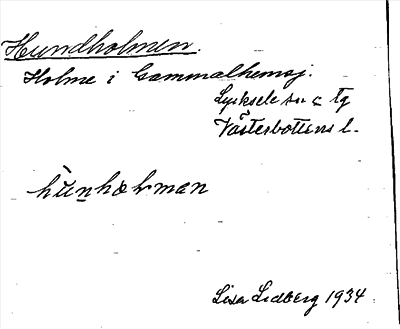 Hundholmen.
Holme i Gammalhemsj.
Lycksele sn o tg
Västerbottens l.
hùnhæɫmæn
Lisa Lidberg 1934